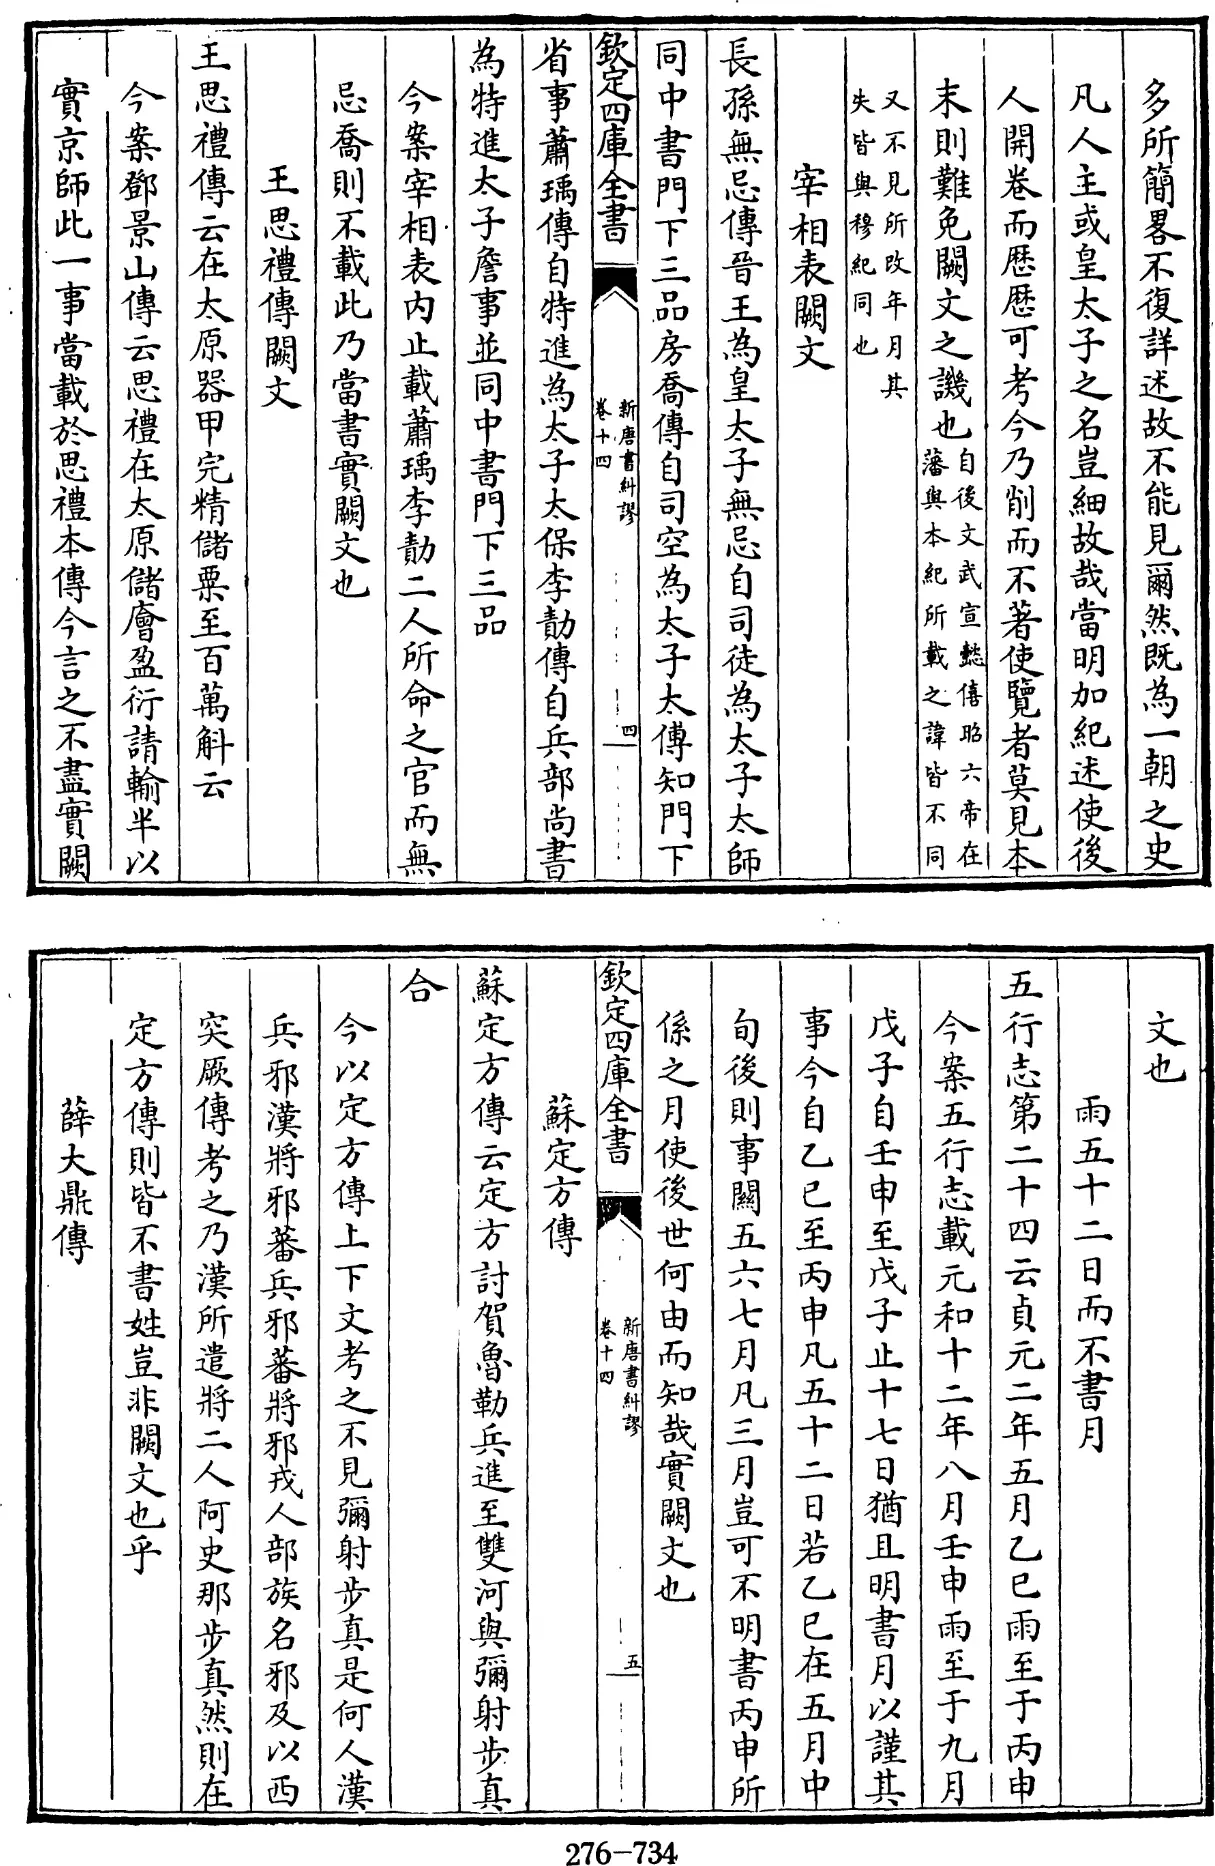 多所簡畧不復詳述故不能見爾然既為一朝之史
凡人主或皇太子之名豈細故哉當明加紀述使後
人開卷而歴歴可考今乃削而不著使覽者莫見本
末則難免闕文之譏也自後文武宣懿僖昭六帝在
藩與本紀所載之諱皆不同
又不見所改年月其
失皆與穆紀同也
宰相表闕文
長孫無忌傳晉王為皇太子無忌自司徒為太子太師
同中書門下三品房喬傳自司空為太子太傅知門下
欽定四庫全書
新唐書糾謬
卷十四
四
省事蕭瑀傳自特進為太子太保李勣傳自兵部尚書
為特進太子詹事並同中書門下三品
今案宰相表内止載蕭瑀李勣二人所命之官而無
忌喬則不載此乃當書實闕文也
王思禮傳闕文
王思禮傳云在太原器甲完精儲粟至百萬斛云
今案鄧景山傳云思禮在太原儲廥盈衍請輸半以
實京師此一事當載於思禮本傳今言之不盡實闕
文也
雨五十二日而不書月
五行志第二十四云貞元二年五月乙巳雨至于丙申
今案五行志載元和十二年八月壬申雨至于九月
戊子自壬申至戊子止十七日猶且明書月以謹其
事今自乙巳至丙申凡五十二日若乙巳在五月中
旬後則事闗五六七月凡三月豈可不明書丙申所
係之月使後世何由而知哉實闕文也
欽定四庫全書
新唐書糾謬
卷十四
五
蘇定方傳
蘇定方傳云定方討賀魯勒兵進至雙河與彌射步真
合
今以定方傳上下文考之不見彌射步真是何人漢
兵邪漢將邪蕃兵邪蕃將邪戎人部族名邪及以西
突厥傳考之乃漢所遣將二人阿史那步真然則在
定方傳則皆不書姓豈非闕文也乎
薛大鼎傳
276-734